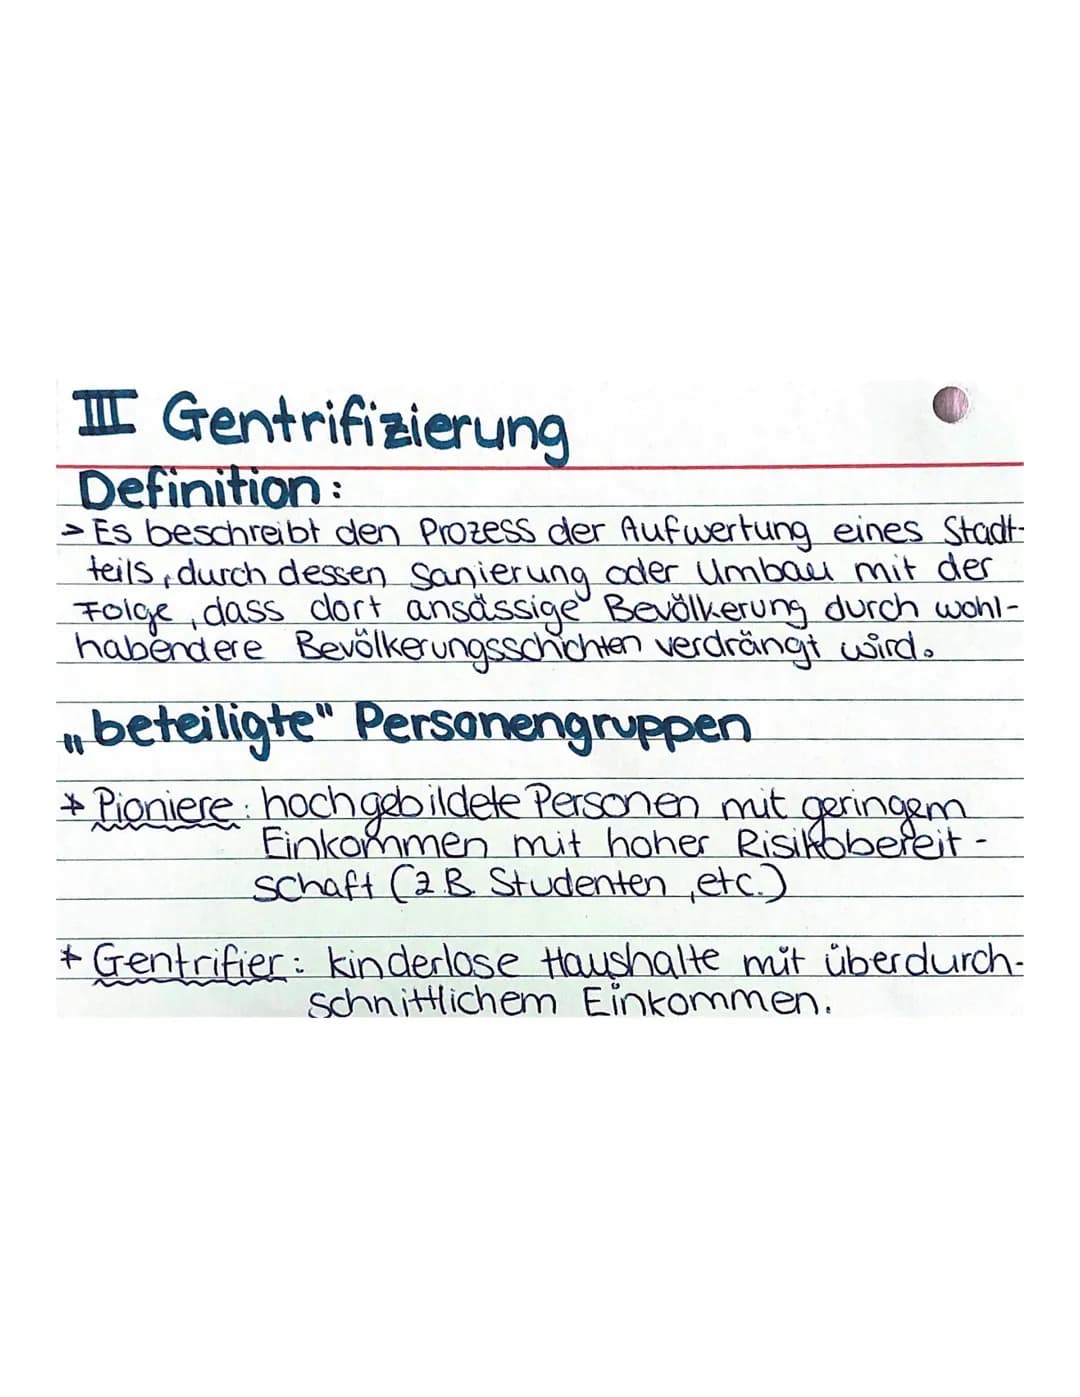 III Gentrifizierung
Definition:
> Es beschreibt den Prozess der Aufwertung eines Stadt-
teils, durch dessen Sanierung oder Umbau mit der
Folge, dass dort ansässige Bevölkerung durch wohl-
habendere Bevölkerungsschichten verdrängt wird.
„beteiligte" Personengruppen
* Pioniere: hochgebildete Personen mit geringem
Einkommen mit hoher Risikobereit-
schaft (z.B. Studenten, etc.)
* Gentrifier: kinderlose Haushalte mit überdurch-
schnittlichem Einkommen.